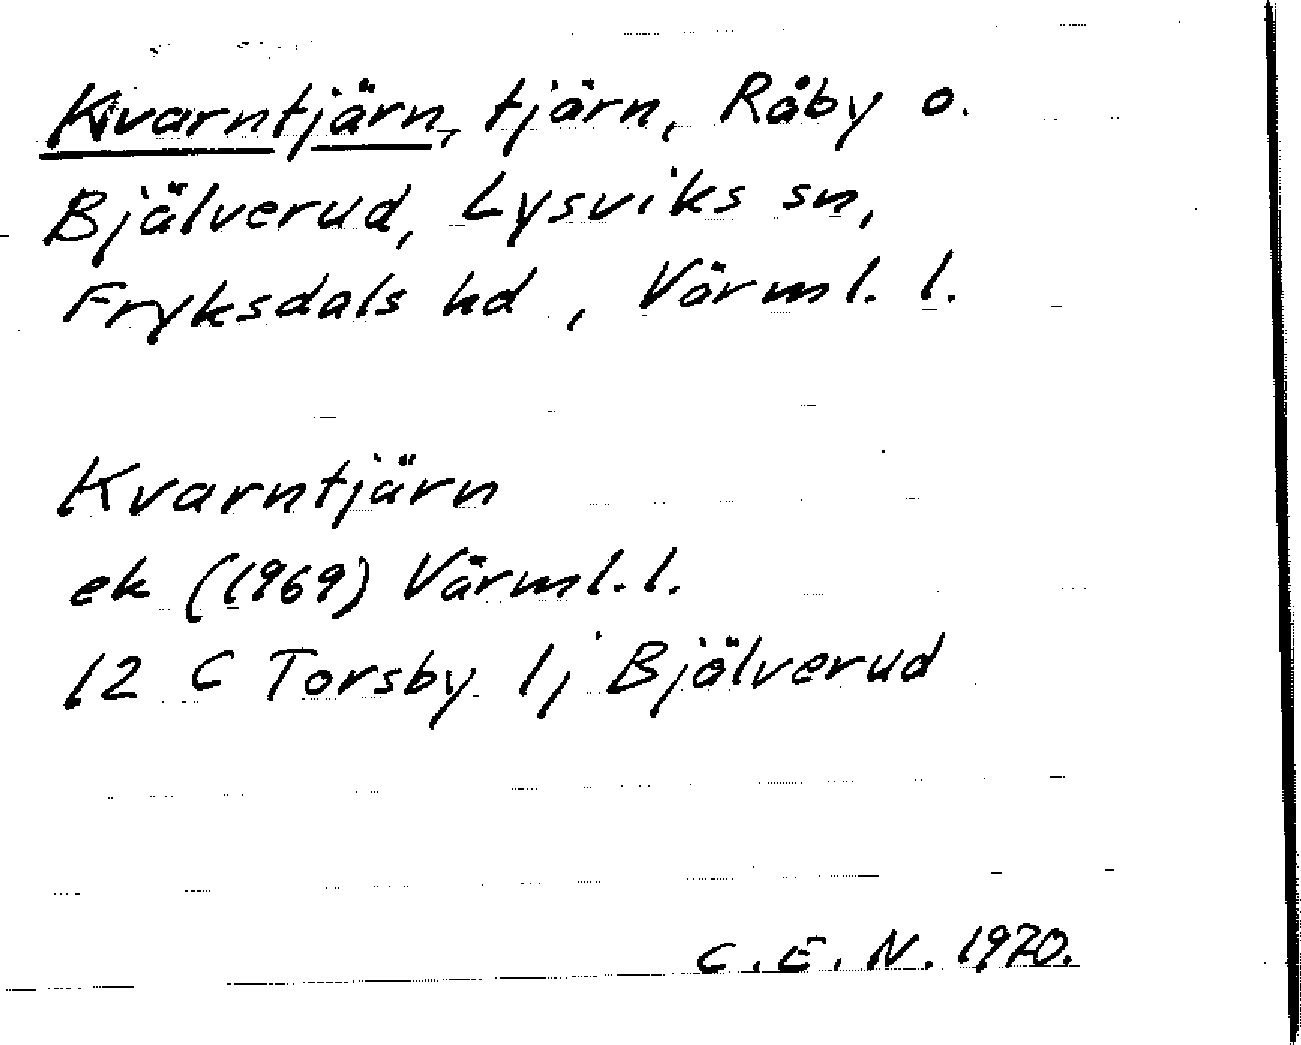 Kvarntjärn, tjärn, Råby o.
Bjälverud, Lysviks sn,
Fryksdals hd, Värml. l.
Kvarntjärn
ek (1969) Värml. l.
12 C Torsby 1j Bjälverud
C. E. N. 1970.